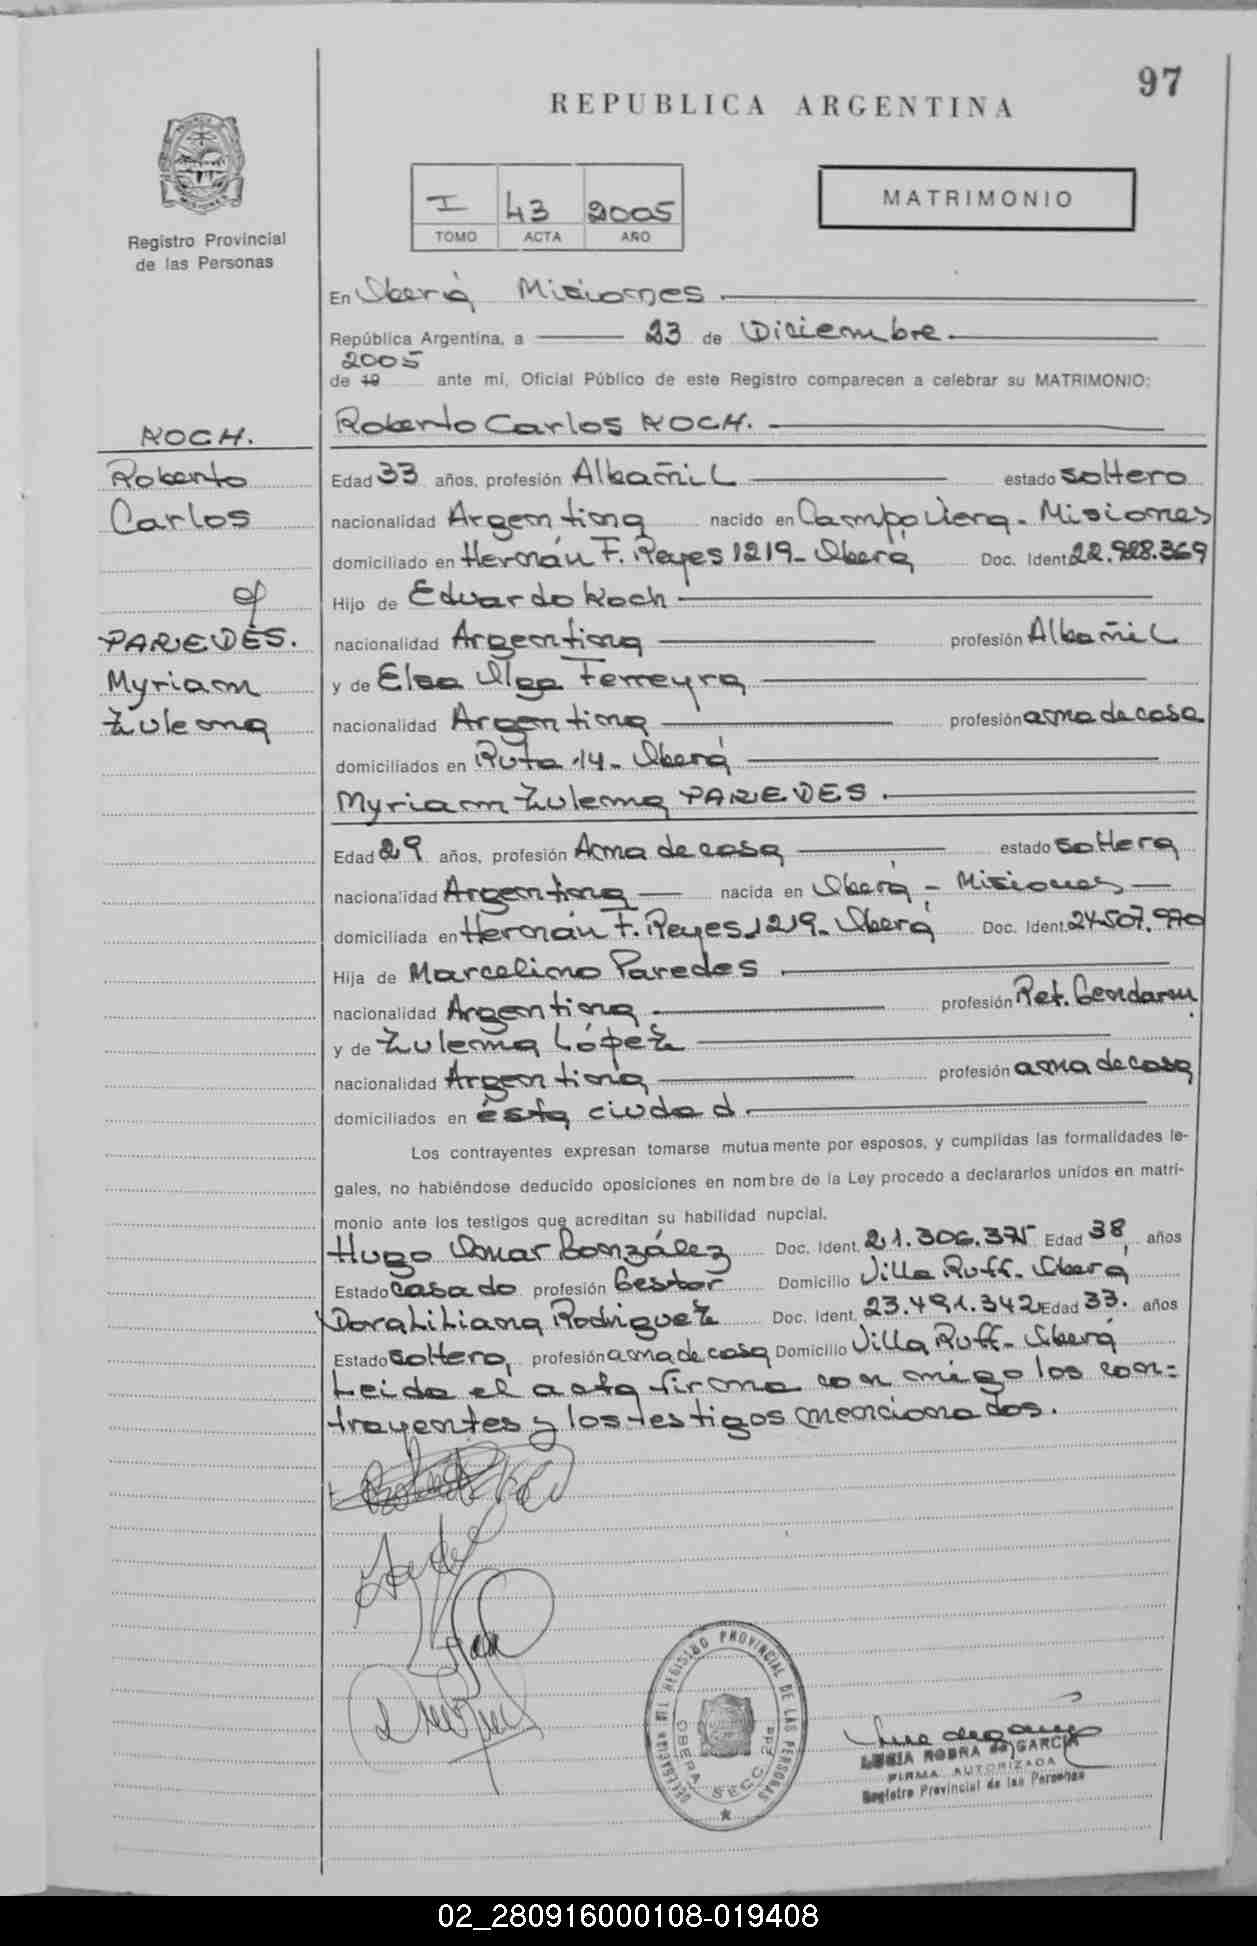 97
REPUBLICA ARGENTINA
I 43 2005
TOMO ACTA AÑO
MATRIMONIO
Registro Provincial
de las Personas
En Oberá Misiones
República Argentina, a 23 de Diciembre
2005
de 19 ante mi, Oficial Público de este Registro comparecen a celebrar su MATRIMONIO:
KOCH.
Roberto
Carlos
PAREDES.
Myriam
Zulema
Roberto Carlos KOCH.
Edad 33 años, profesión Albañil estado soltero
nacionalidad Argentina nacido en Campo Viera - Misiones
domiciliado en Hernán F. Reyes 1219 - Oberá Doc. Ident. 22.928.369
Hijo de Eduardo Koch
nacionalidad Argentina profesión Albañil
y de Elsa Olga Ferreyra
nacionalidad Argentina profesión ama de casa
domiciliados en Ruta 14 - Oberá
Myriam Zulema PAREDES.
Edad 29 años, profesión Ama de casa estado soltera
nacionalidad Argentina nacida en Oberá - Misiones
domiciliada en Hernán F. Reyes 1219 - Oberá Doc. Ident. 24.507.970
Hija de Marcelino Paredes
nacionalidad Argentina profesión Ret. Gendarm.
y de Zulema López
nacionalidad Argentina profesión ama de casa
domiciliados en ésta ciudad.
Los contrayentes expresan tomarse mutuamente por esposos, y cumplidas las formalidades le-
gales, no habiéndose deducido oposiciones en nombre de la Ley procedo a declararlos unidos en matri-
monio ante los testigos que acreditan su habilidad nupcial.
Hugo Omar González Doc. Ident. 21.306.375 Edad 38 años
Estado casado profesión Gestor Domicilio Villa Ruff - Oberá
Dora Liliana Rodriguez Doc. Ident. 23.491.342 Edad 33. años
Estado soltero, profesión ama de casa Domicilio Villa Ruff - Oberá
Leida el acta firma con migo los con=
trayentes y los testigos mencionados.
DELEGACION DEL REGISTRO PROVINCIAL DE LAS PERSONAS
OBERA SECC. 2da
GARCIA
FIRMA AUTORIZADA
Registro Provincial de las Personas
02_280916000108-019408